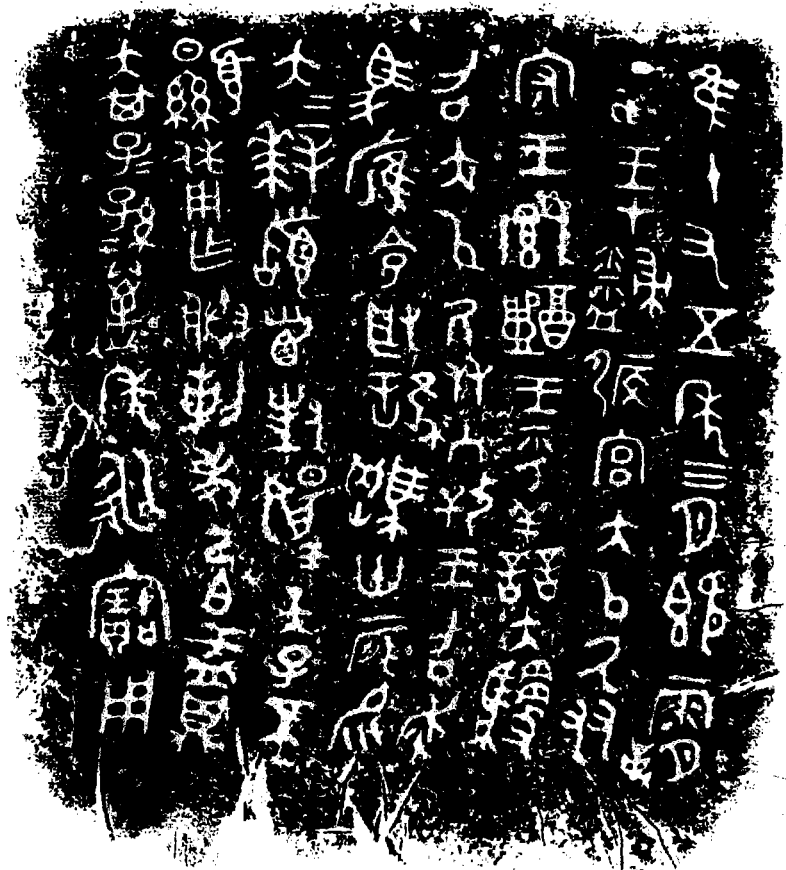 隹十又五年三月既霸丁
亥王才侲宮大以氒友
守王鄉醴王乎善大
召大以氒友入攼王召走
馬雁令取卅二匹易
大=拜𩒨首對揚天子不
顯休用乍朕剌考己白盂鼎
大其子=孫=萬年永寶用